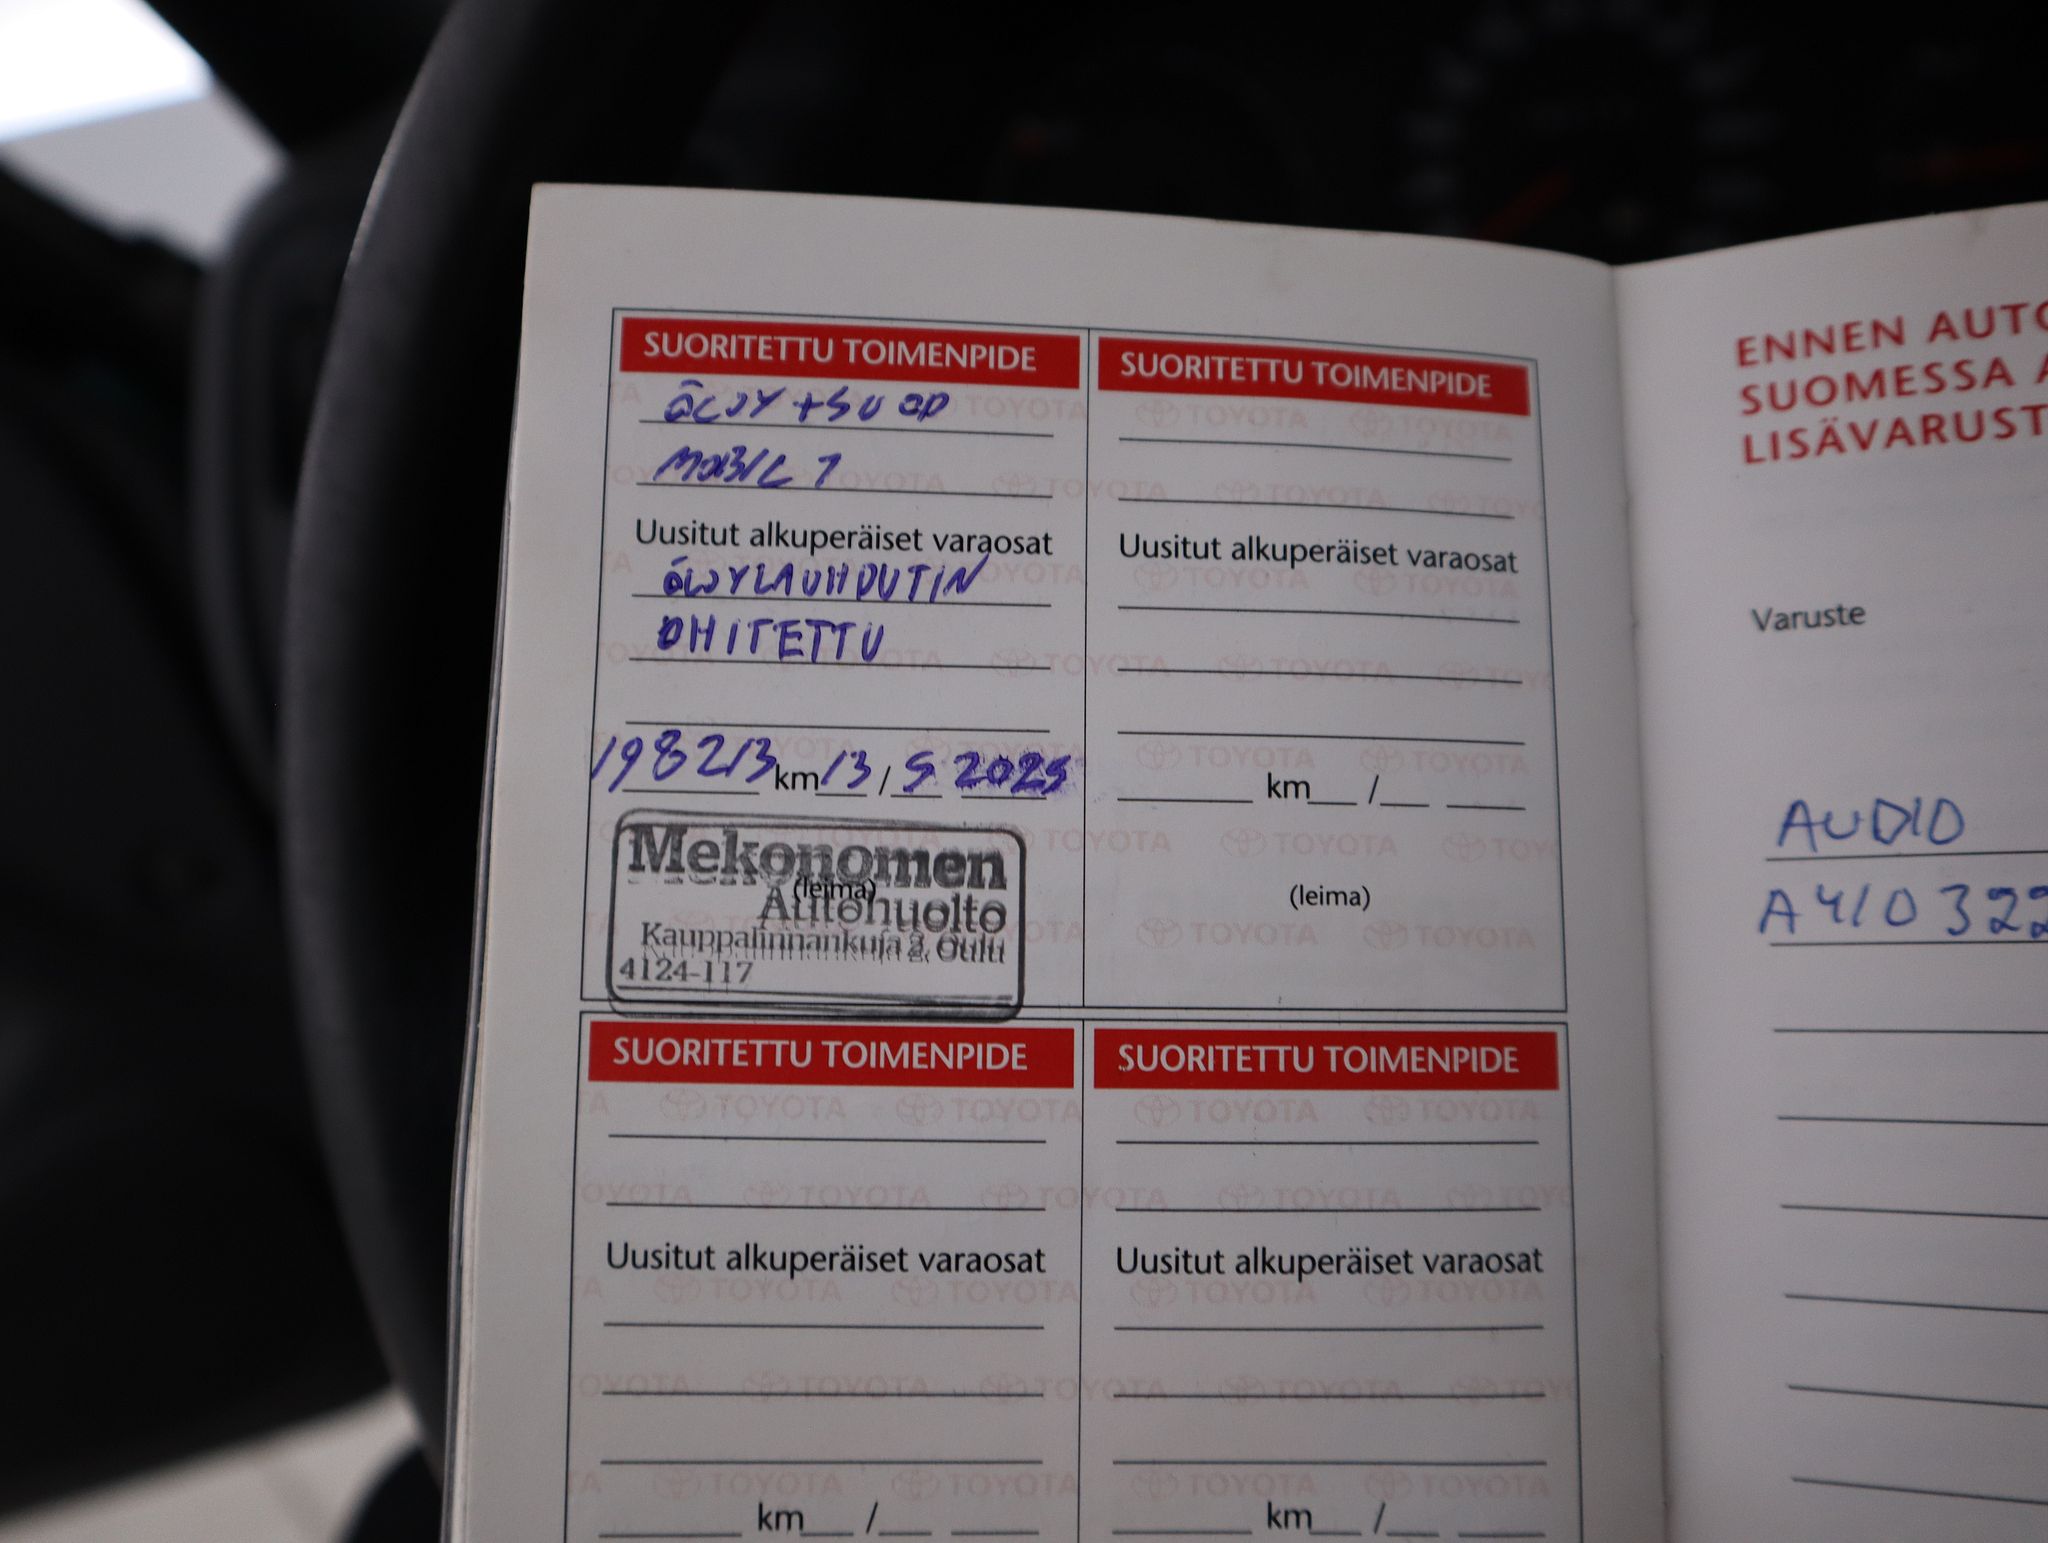 SUORITETTU TOIMENPIDE
ÖLJY + SUOD
MOBIL 1
Uusitut alkuperäiset varaosat
ÖLJYLAUHDUTIN
OHITETTU
198213 km 13 / 5 2025
Mekonomen
(leima)
Autohuolto
Kauppalinnankuja 2, Oulu
4124-117
SUORITETTU TOIMENPIDE
Uusitut alkuperäiset varaosat
km /
(leima)
SUORITETTU TOIMENPIDE
Uusitut alkuperäiset varaosat
km /
SUORITETTU TOIMENPIDE
Uusitut alkuperäiset varaosat
km /
ENNEN AUTO
SUOMESSA A
LISÄVARUST
Varuste
AUDIO
A410322